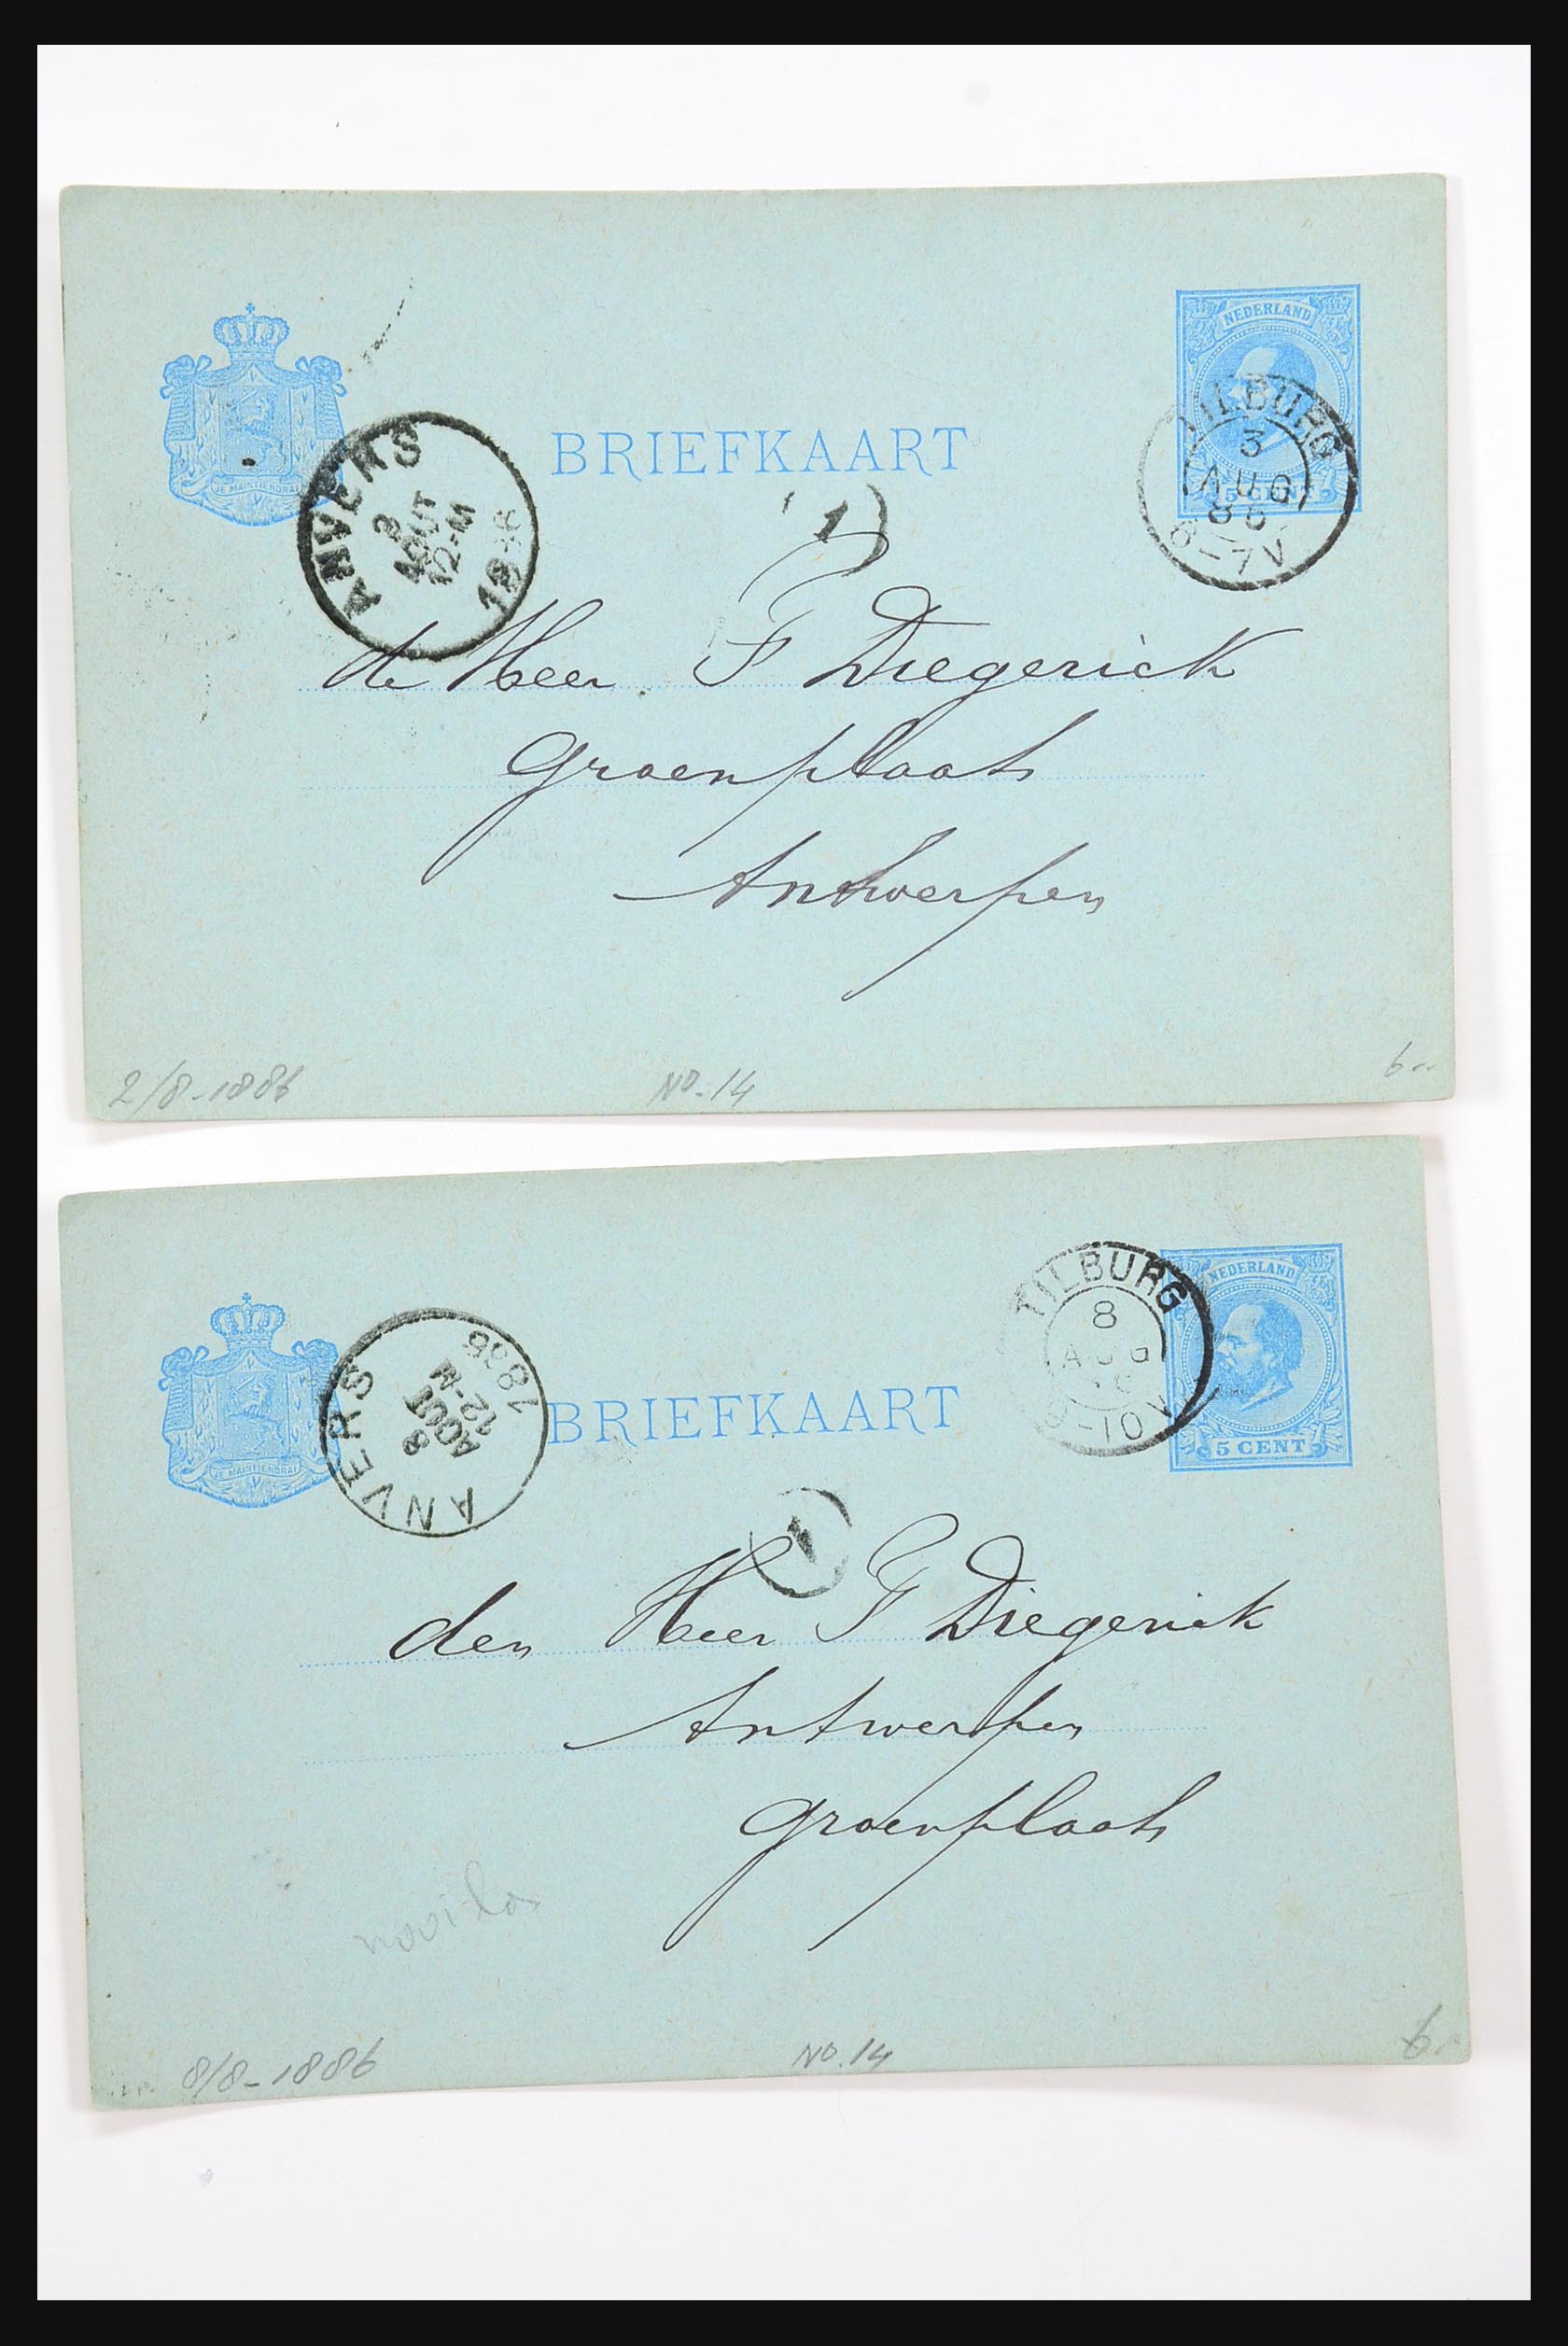 NEDERLAND
5 CENT
JE MAINTIENDRAI
BRIEFKAART
TILBURG
3
AUG
86
6-7V
ANVERS
3
AOUT
12-M
1886
1
de Heer F Diegerick
Groenplaats
Antwerpen
2/8-1886
NO.14
6..
NEDERLAND
5 CENT
JE MAINTIENDRAI
BRIEFKAART
TILBURG
8
AUG
-10V
ANVERS
8
AOUT
12-M
1886
1
den Heer F Diegerick
Antwerpen
Groenplaats
8/8-1886
NO.14
6